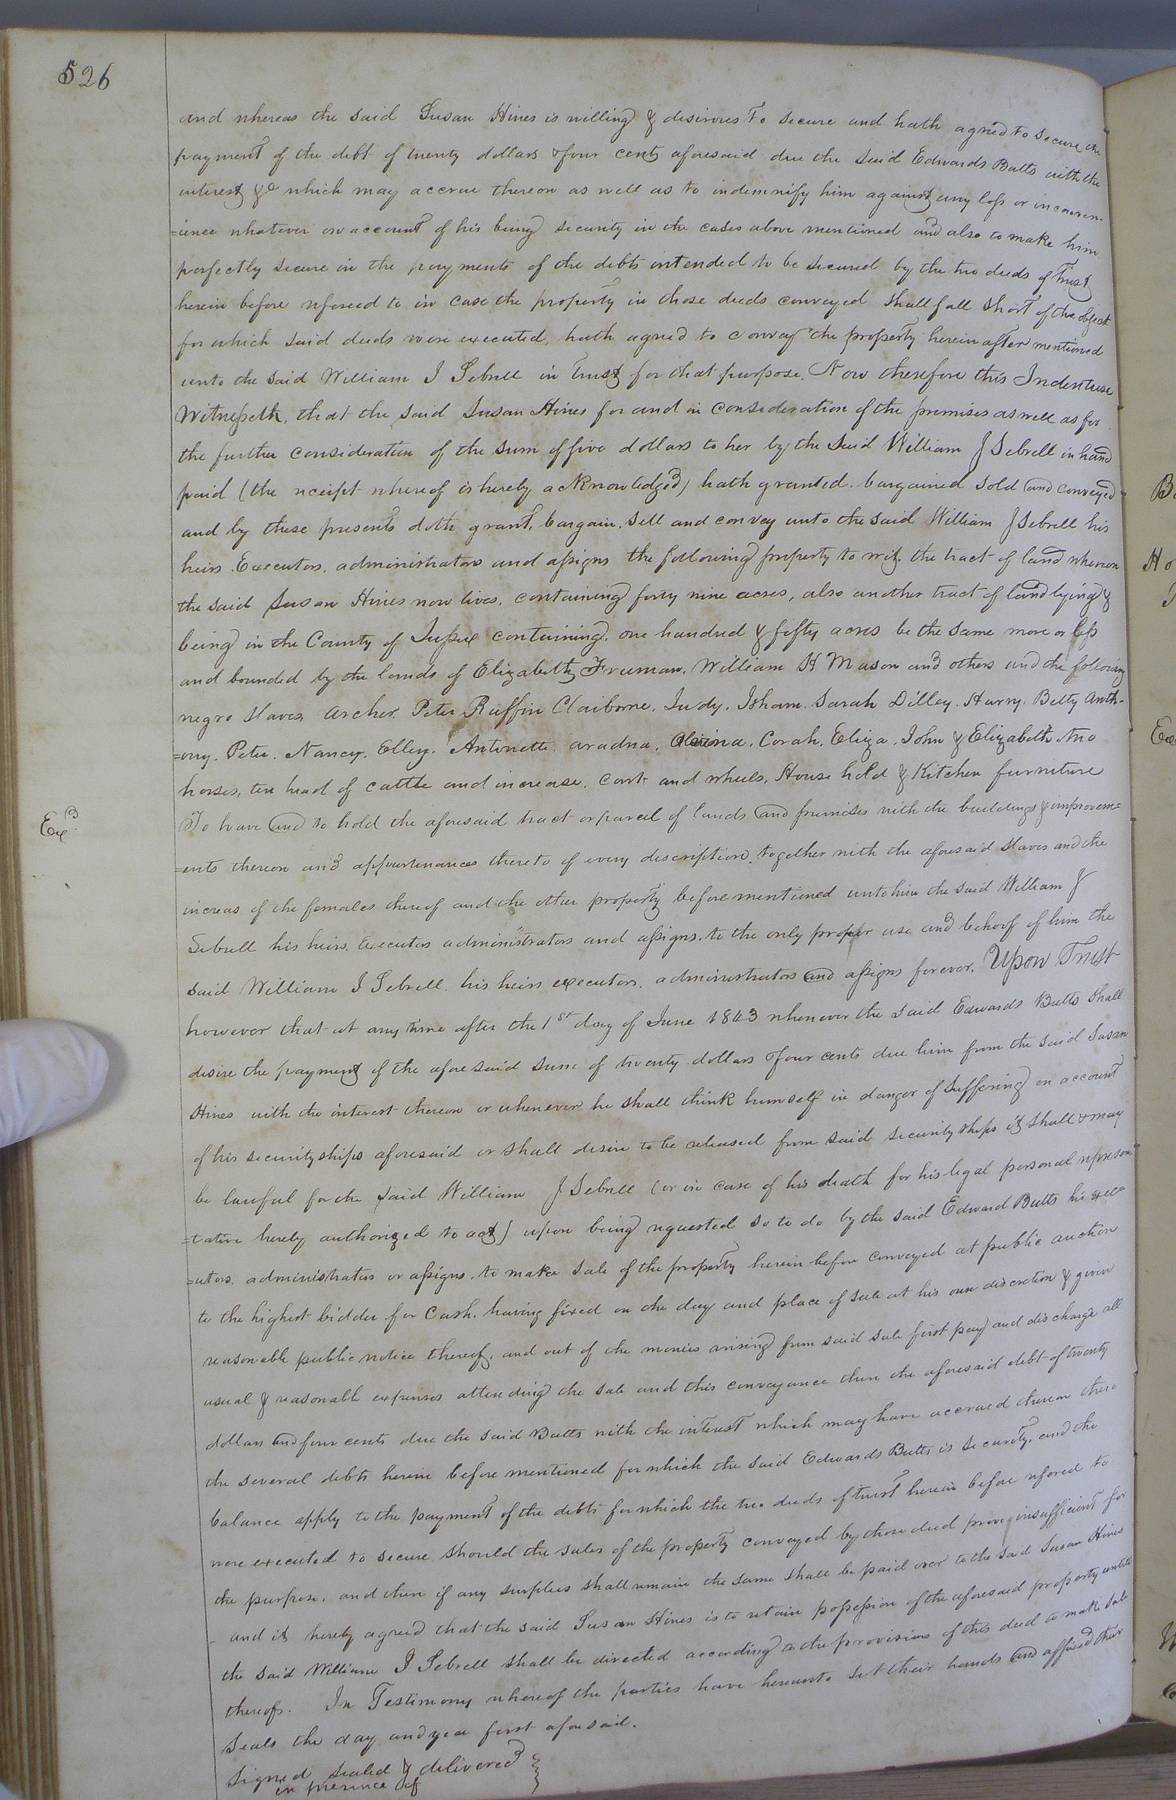 526
and whereas the said Susan Hines is willing & desirous to secure and hath agreed to secure the
payment of the debt of twenty dollars & four cents aforesaid due the said Edwards Butts with the
interest &c which may accrue thereon as well as to indemnify him against any loss or inconven-
=ience whatever on account of his being security in the cases above mentioned and also to make him
perfectly secure in the payments of the debts intended to be secured by the two deeds of trust
herein before refered to in case the property in those deeds conveyed shall fall short of the object
for which said deeds were executed, hath agreed to convey the property herein after mentioned
unto the said William J Sebrell in trust for that purpose. Now therefore this Indenture
Witnesseth, that the said Susan Hines for and in consideration of the premises as well as for
the further consideration of the sum of five dollars to her by the said William J Sebrell in hand
paid (the receipt whereof is hereby acknowledged) hath granted. bargained sold and conveyed
and by these presents doth grant, bargain, sell and convey unto the said William J Sebrell his
heirs. Executors, administrators and assigns the following property to wit, the tract of land whereon
the said Susan Hines now lives, containing forty nine acres, also another tract of land lying &
being in the County of Sussex containing, one hundred & fifty acres be the same more or less
and bounded by the lands of Elizabeth Freeman, William H Mason and others and the following
negro slaves, Archer, Peter, Ruffin Claiborne, Judy, Isham, Sarah Dilley, Harry, Betty Anth-
=ony, Peter, Nancy, Elley, Antonette aradna, Corah, Eliza, John & Elizabeth two
horses, ten head of cattle and increase, cart and wheels, House hold & Kitchen furniture
Exd
To have and to hold the aforesaid tract or parcel of lands and premises with the buildings & improvem=
=ents thereon and appurtenances thereto of every description, together with the aforesaid slaves and the
increas of the females thereof and the other property before mentioned unto him the said William J
Sebrell his heirs, executors administrators and assigns, to the only proper use and behoof of him the
said William J Sebrell his heirs executors, administrators and assigns forever. Upon Trust
however that at any time after the 1st day of June 1843 whenever the said Edwards Butts shall
desire the payment of the aforesaid sum of twenty dollars & four cents due him from the said Susan
Hines with the interest thereon or whenever he shall think himself in danger of suffering on account
of his securityships aforesaid or shall desire to be released from said securityships it shall & may
be lawful for the said William J Sebrell (or in case of his death for his legal personal represen
=tative hereby authorized to act) upon being requested so to do by the said Edward Butts his exec
=utors, administrators or assigns, to make sale of the property herein before conveyed at public auction
to the highest bidder for Cash, having fixed on the day and place of sale at his own discretion & given
reasonable public notice thereof, and out of the monies arising from said sale first pay and discharge all
usual & reasonable expenses attending the sale and this conveyance then the aforesaid debt of twenty
dollars and four cents due the said Butts with the interest which may have accrued thereon then
the several debts herein before mentioned for which the said Edwards Butts is security, and the
balance apply to the payment of the debts for which the two deeds of trust herein before refered to
were executed to secure should the sales of the property conveyed by those deed prove insufficient for
the purpose, and then if any surplus shall remain the same shall be paid over to the said Susan Hines
and it is hereby agreed that the said Susan Hines is to retain possession of the aforesaid property untill
the said William J Sebrell shall be directed according to the provisions of this deed to make sale
thereof. In Testimony whereof the parties have hereunto set their hands and affixed their
seals the day and year first aforesaid.
Signed sealed & delivered
in presence of